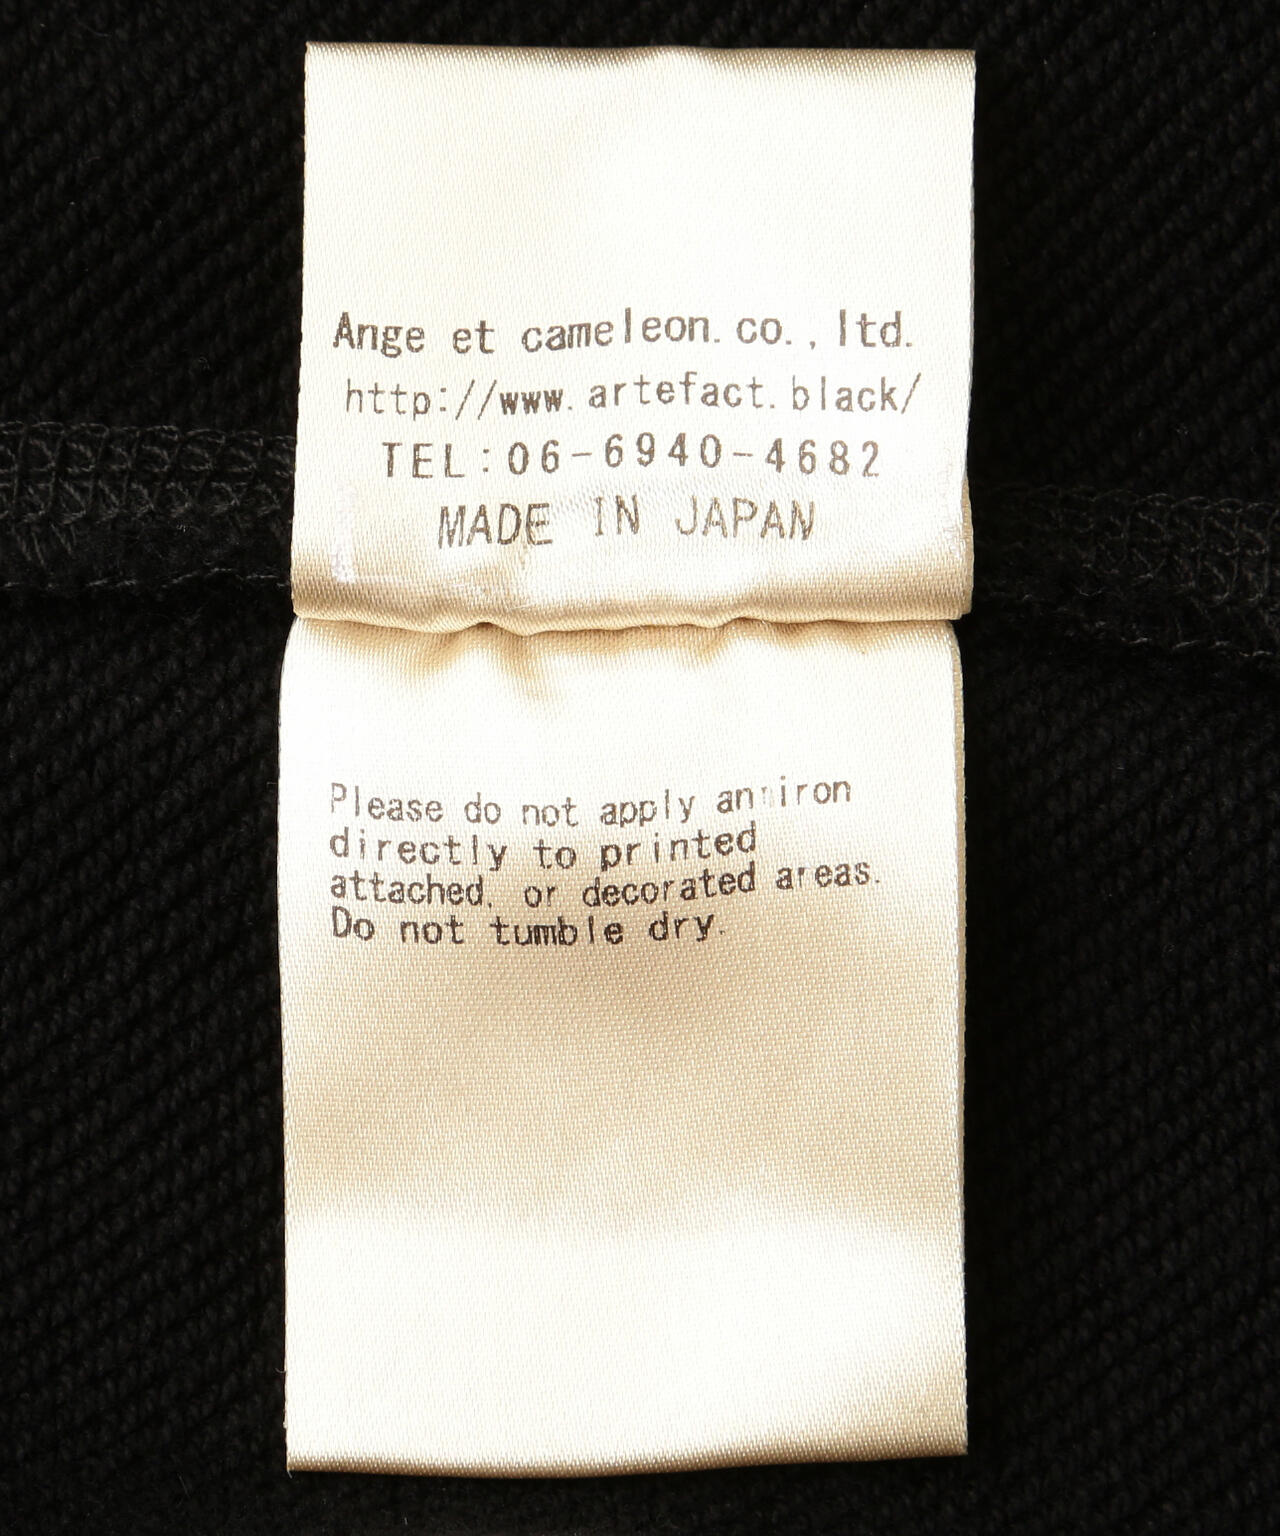 Ange et cameleon. co., ltd.
http://www.artefact.black/
TEL:06-6940-4682
MADE IN JAPAN
Please do not apply an iron
directly to printed
attached, or decorated areas.
Do not tumble dry.